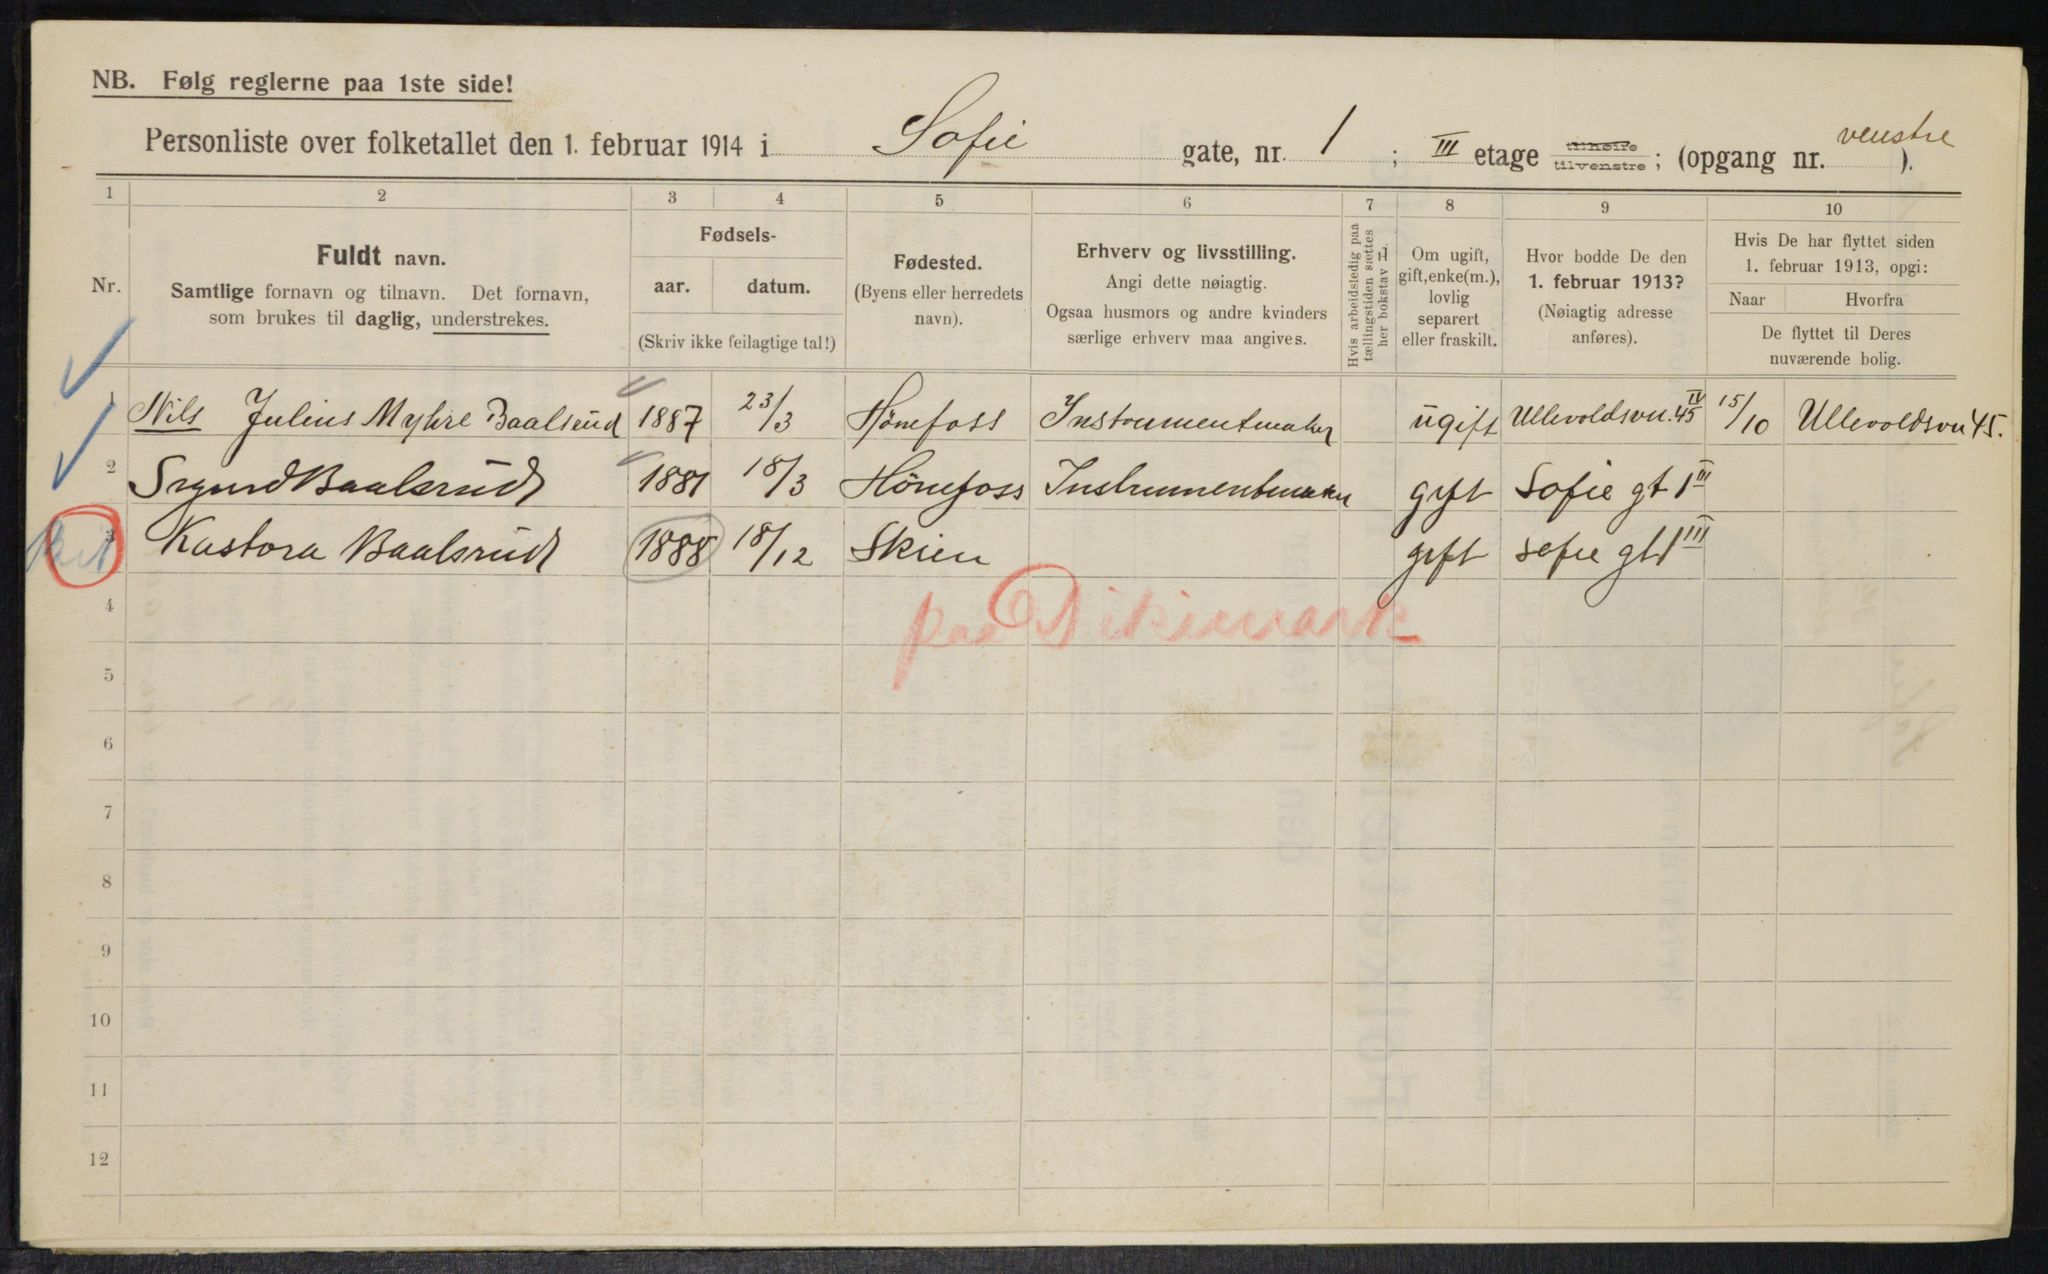 NB. Følg reglerne paa 1ste side!
Personliste over folketallet den 1. februar 1914 i Sofie gate, nr. 1 ; III etage tilhøire tilvenstre ; (opgang nr. venstre ).
1 2 3 4 5 6 7 8 9 10
Nr.
Fuldt navn.
Samtlige fornavn og tilnavn. Det fornavn,
som brukes til daglig, understrekes.
Fødsels-
aar. datum.
(Skriv ikke feilagtige tal!)
Fødested.
(Byens eller herredets
navn).
Erhverv og livsstilling.
Angi dette nøiagtig.
Ogsaa husmors og andre kvinders
særlige erhverv maa angives.
Hvis arbeidsledig paa
tællingstiden sættes
her bokstav L.
Om ugift,
gift, enke(m.),
lovlig
separert
eller fraskilt.
Hvor bodde De den
1. februar 1913?
(Nøiagtig adresse
anføres).
Hvis De har flyttet siden
1. februar 1913, opgi:
Naar Hvorfra
De flyttet til Deres
nuværende bolig.
1 Nils Julius Myhre Baalsrud 1887 23/3 Hønefoss Instrumentmaker ugift Ullevoldsvn. 45 IV 15/10 Ullevoldsvn 45.
2 Sigurd Baalsrud 1881 18/3 Hønefoss Instrumentmaker gift Sofie gt 1 III
3 Kastora Baalsrud 1888 18/12 Skien gift Sofie gt 1 III
4 paa Dikemark
5
6
7
8
9
10
11
12